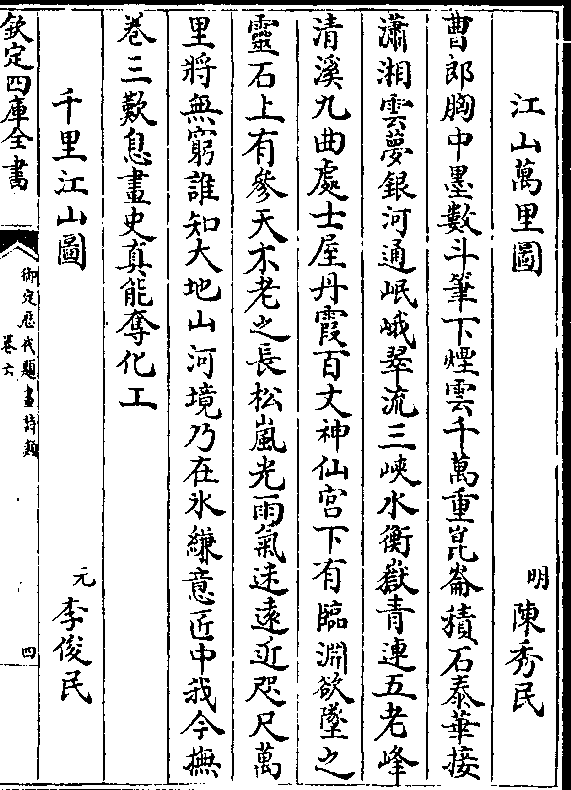 江山萬里圖　明　陳秀民
曹郎胸中墨數斗筆下煙雲千萬重崑崙積石泰華接
瀟湘雲夢銀河通岷峨翠流三峽水衡嶽青連五老峰
清溪九曲處士屋丹霞百丈神仙宮下有臨淵欲墜之
靈石上有參天不老之長松嵐光雨氣迷遠近咫尺萬
里將無窮誰知大地山河境乃在氷縑意匠中我今撫
巻三歎息畫史真能奪化工
千里江山圖　元　李俊民
欽定四庫全書
御定歷代題畫詩類
巻六
四